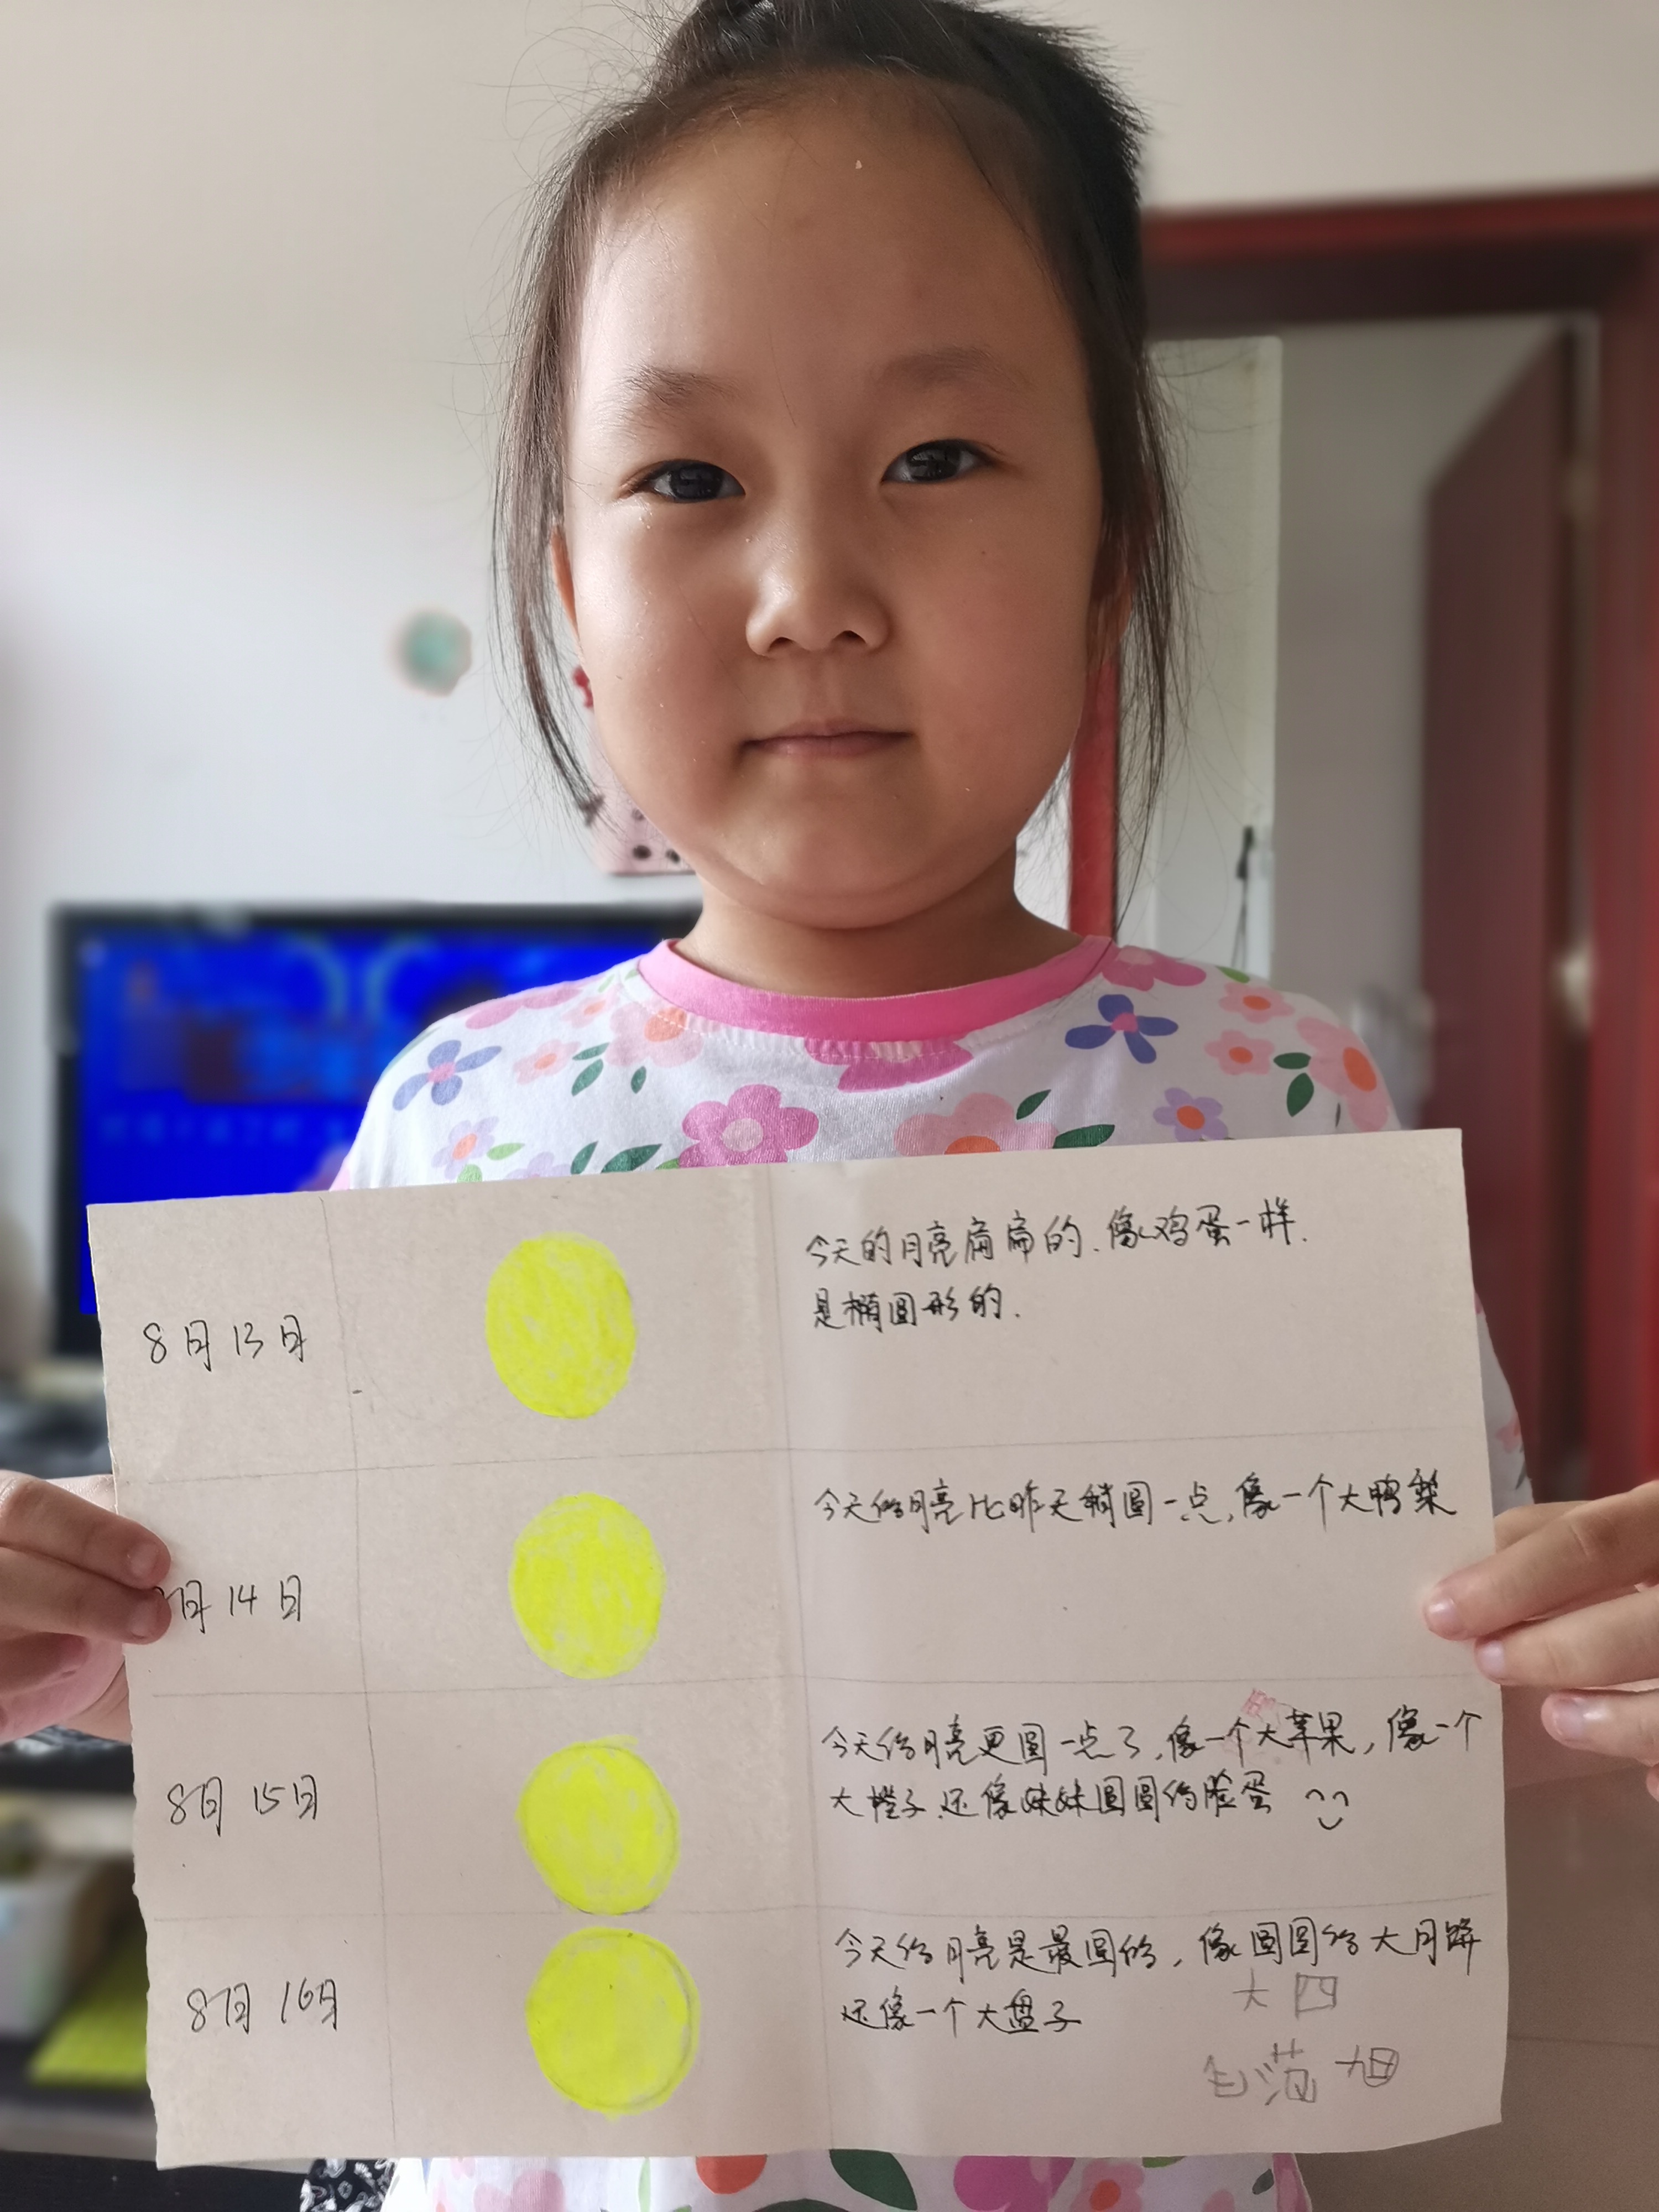 8月13日
今天的月亮扁扁的.像鸡蛋一样.
是椭圆形的.
月14日
今天的月亮比昨天稍圆一点,像一个大鸭梨
8月15日
今天的月亮更圆一点了,像一个大苹果,像一个
大橙子.还像妹妹圆圆的脸蛋
8月16日
今天的月亮是最圆的,像圆圆的大月饼
还像一个大盘子
大四
范旭